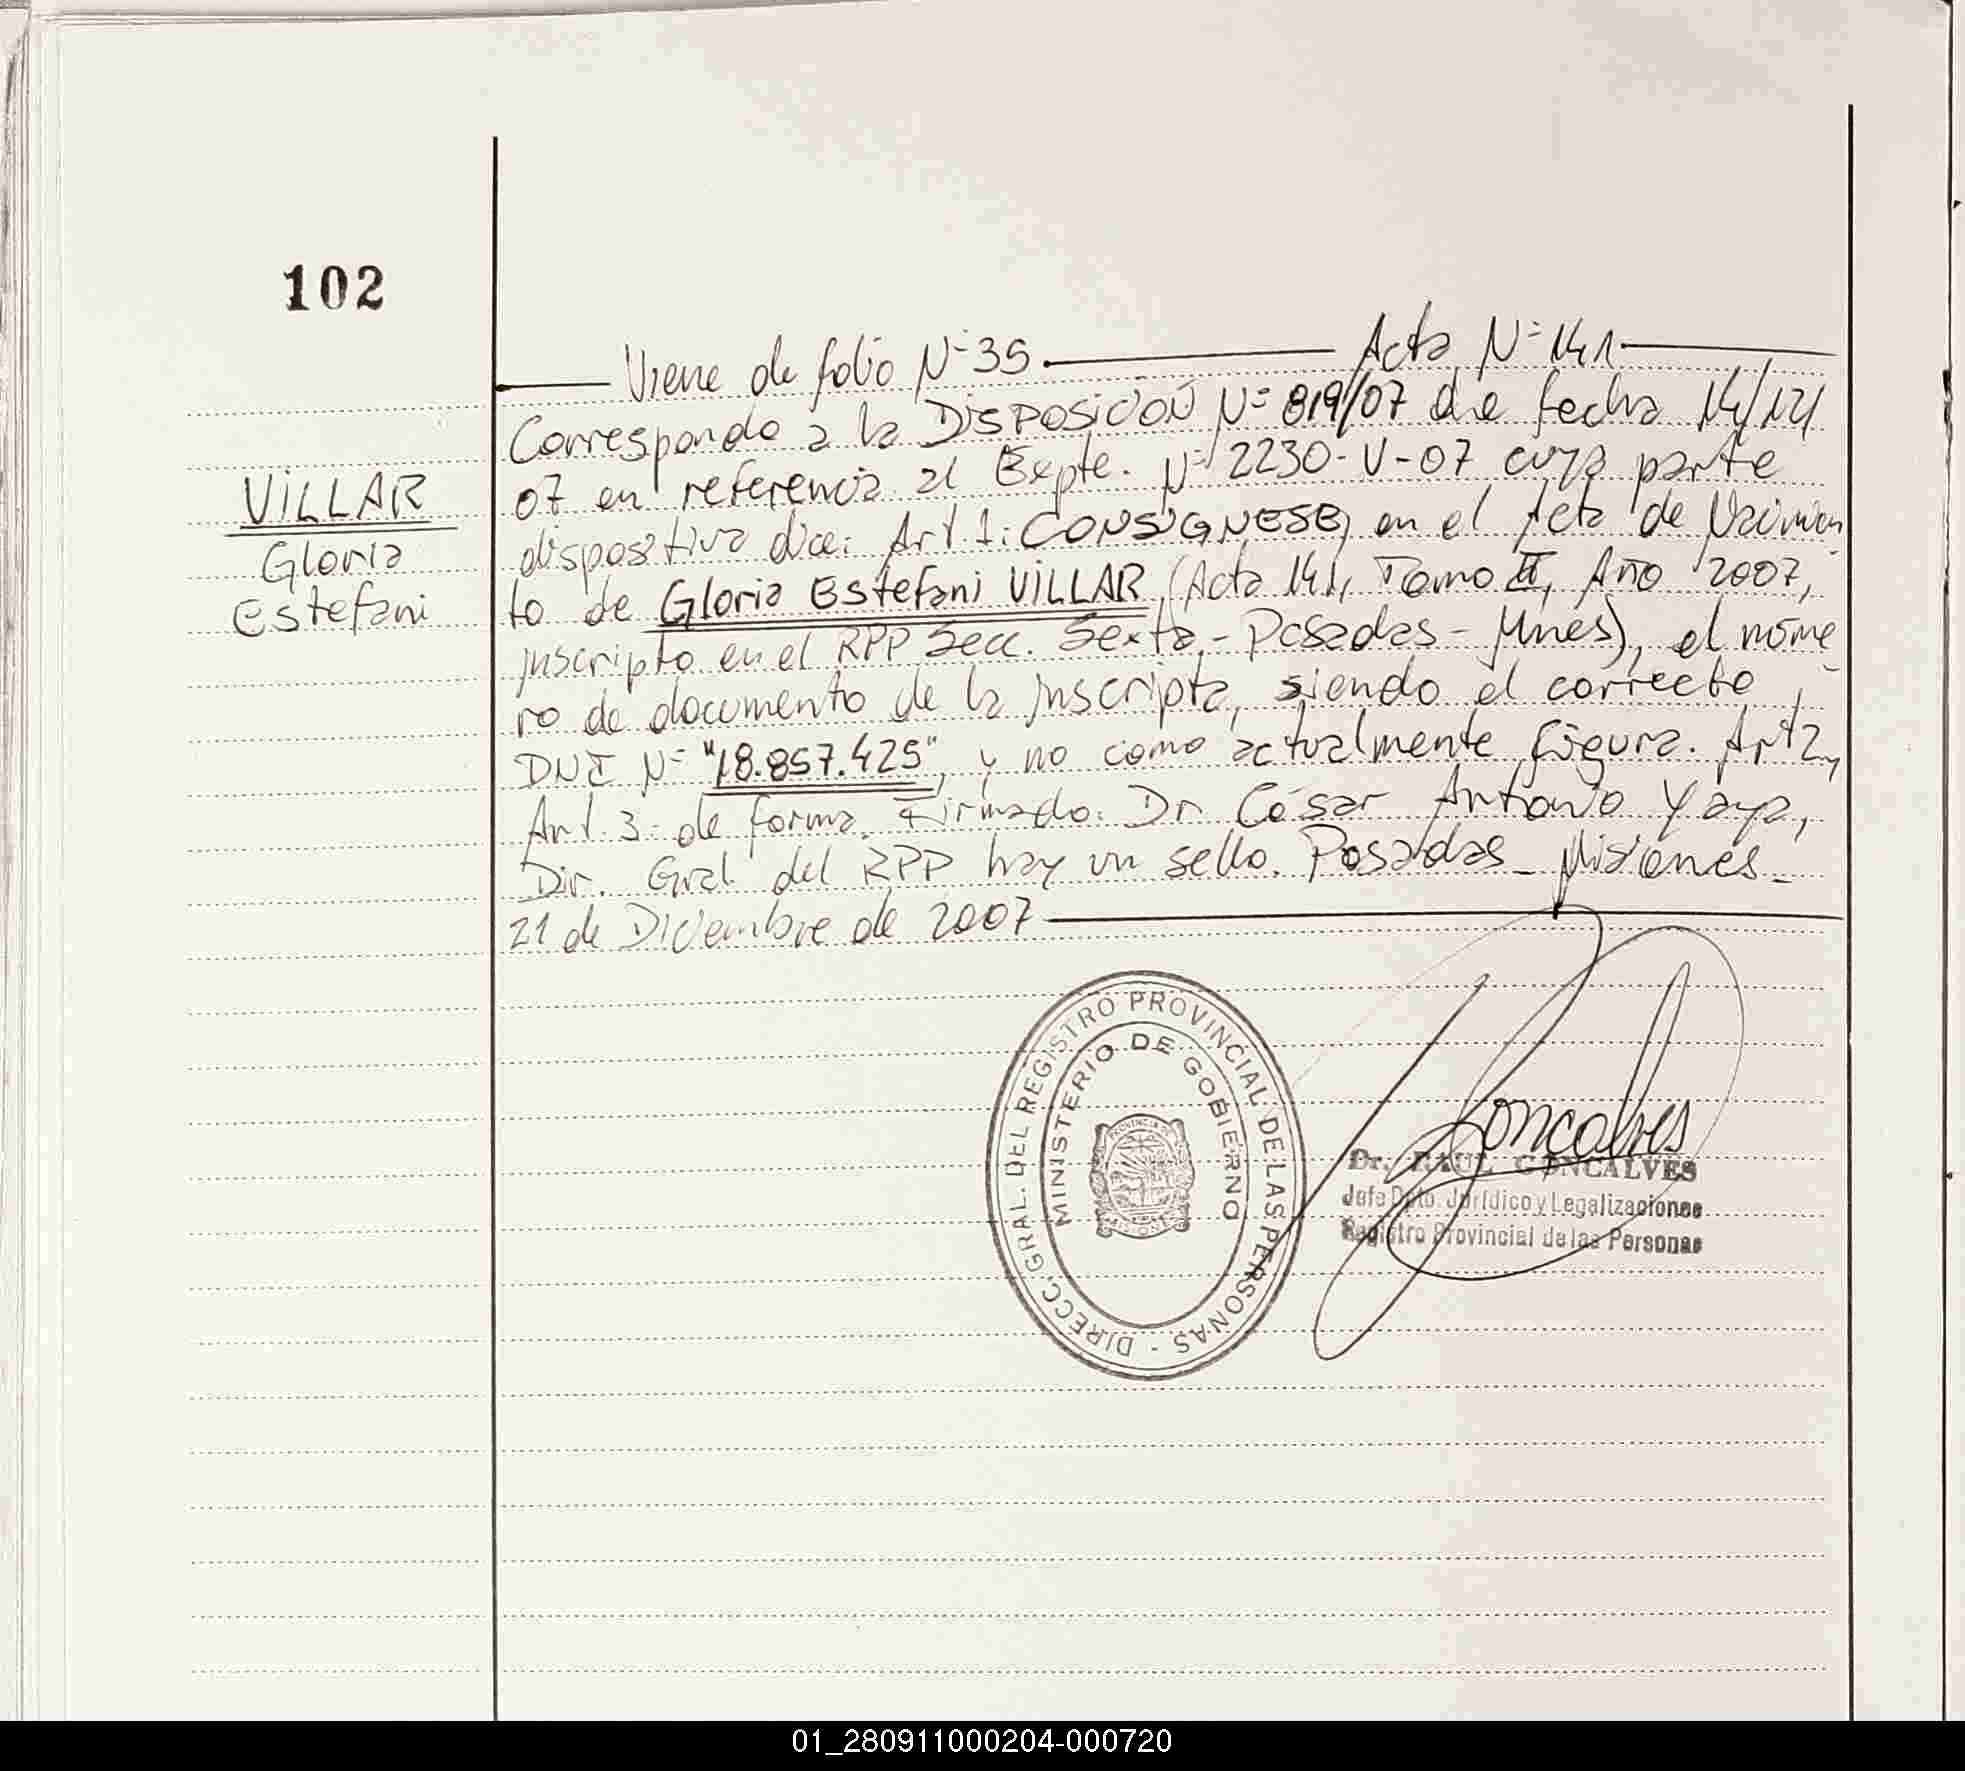 102
Viene de folio Nº 35 Acta Nº 141
VILLAR
Gloria
Estefani
Corresponde a la DISPOSICIÓN Nº 819/07 de fecha 14/12/
07 en referencia al Expte. Nº 2230-V-07 cuya parte
dispositiva dice: Art. 1: CONSIGNESE, en el Acta de Nacimien
to de Gloria Estefani VILLAR (Acta 141, Tomo II, Año 2007,
inscripto en el RPP Secc. Sexta - Posadas - Mnes), el núme
ro de documento de la inscripta, siendo el correcto
DNI Nº "18.857.425", y no como actualmente figura. Art 2,
Art. 3: de forma. Firmado: Dr. César Antonio Yaya,
Dir. Gral del RPP hay un sello. Posadas - Misiones -
21 de Diciembre de 2007
DIRECC. GRAL. DEL REGISTRO PROVINCIAL DE LAS PERSONAS -
MINISTERIO DE GOBIERNO
Goncalves
Dr. RAUL GONCALVES
Jefe Dpto. Jurídico y Legalizaciones
Registro Provincial de las Personas
01_280911000204-000720